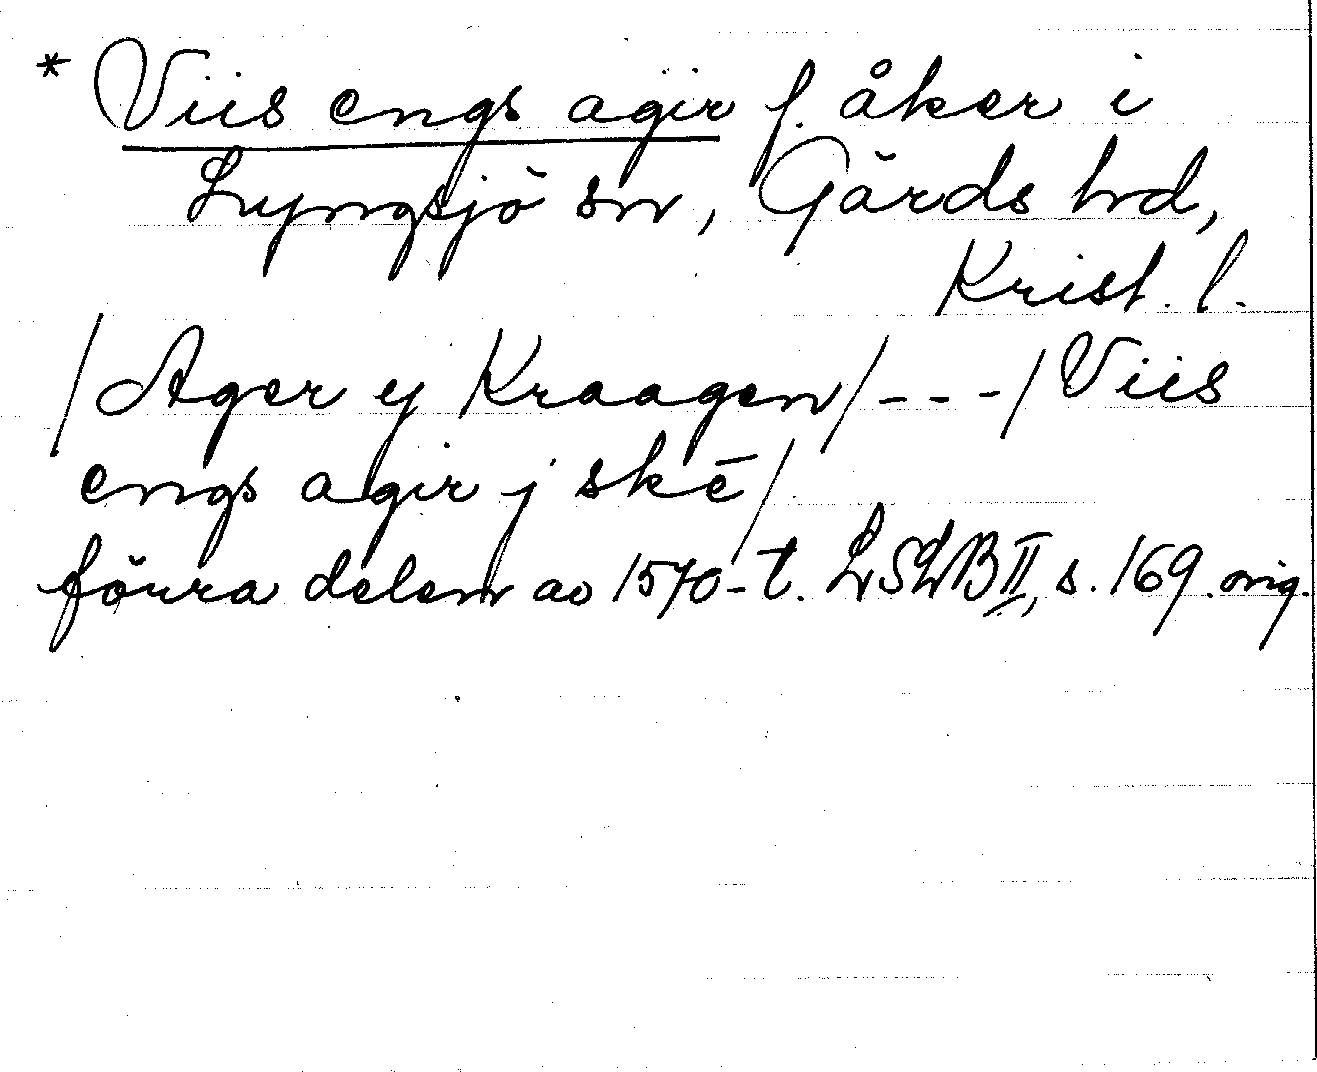 * Viis engs agir f. åker i
Lyngsjö sn, Gärds hd,
Krist. l.
/Ager ej Kraagen/---/Viis
engs agir j skē/
förra delen av 1570-t. LSLB II, s. 169. orig.